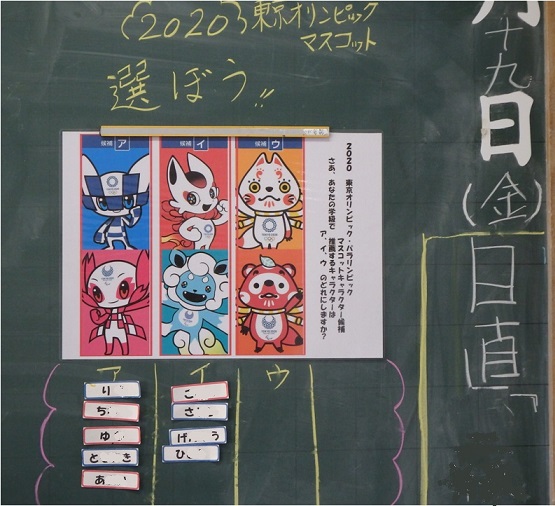 2020 東京オリンピック
マスコット
選ぼう!!
候補 ア
候補 イ
候補 ウ
2020 東京オリンピック・パラリンピック
マスコットキャラクター候補
さあ、あなたの学級で 推薦するキャラクターは
ア、イ、ウ のどれにしますか?
ア イ ウ
り
ち
ゆ
と き
あ
こ
さ
げ う
ひ
月
十九日(金)
日直